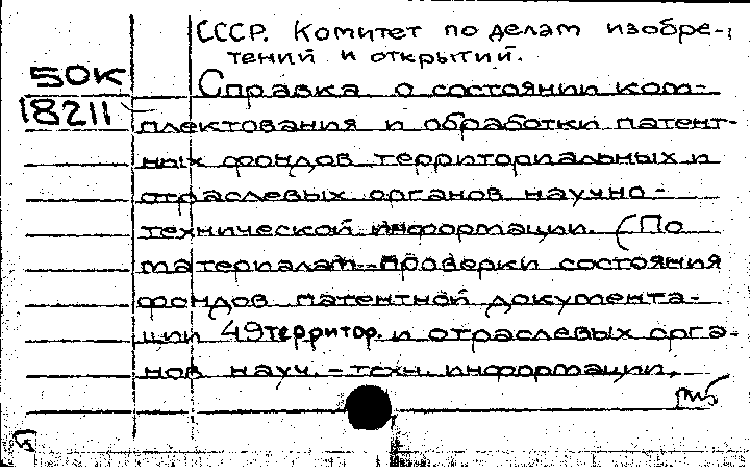 СССР. Комитет по делам изобре-
тений и открытий.
50К
18211
Справка о состоянии ком-
плектования и обработки патент-
ных фондов территориальных и
отраслевых органов научно-
технической информации. (По
материалам проверки состояния
фондов патентной документа-
ции 49 территор. и отраслевых орга-
нов науч.-техн. информации.